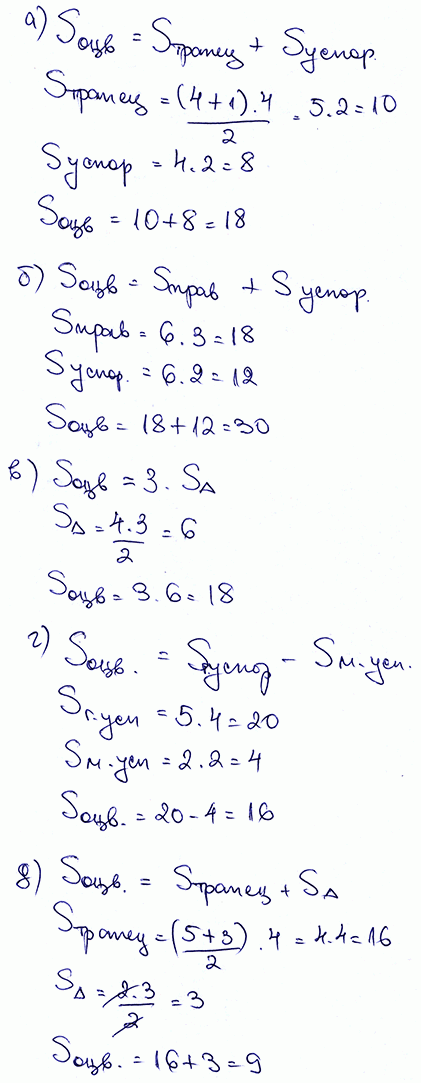 а) Sоцв = Sтрапец + Sуспор.
Sтрапец = (4+1).4/2 = 5.2=10
Sуспор = 4.2=8
Sоцв = 10+8=18
б) Sоцв = Sправ + Sуспор.
Sправ = 6.3=18
Sуспор. = 6.2=12
Sоцв = 18+12=30
в) Sоцв = 3. S△
S△ = 4.3/2 = 6
Sоцв = 3.6=18
г) Sоцв. = Sг.успор - Sм.усп.
Sг.усп = 5.4=20
Sм.усп = 2.2=4
Sоцв. = 20-4=16
д) Sоцв. = Sтрапец + S△
Sтрапец = (5+3)/2 .4 = 4.4=16
S△ = 2.3/2 = 3
Sоцв. = 16+3=9